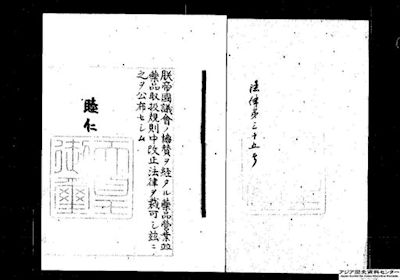 法律第三十五号
朕帝國議會ノ協賛ヲ経タル藥品營業並
藥品取扱規則中改正法律ヲ裁可シ玆ニ
之ヲ公布セシム
睦仁
天皇
御璽
アジア歴史資料センター